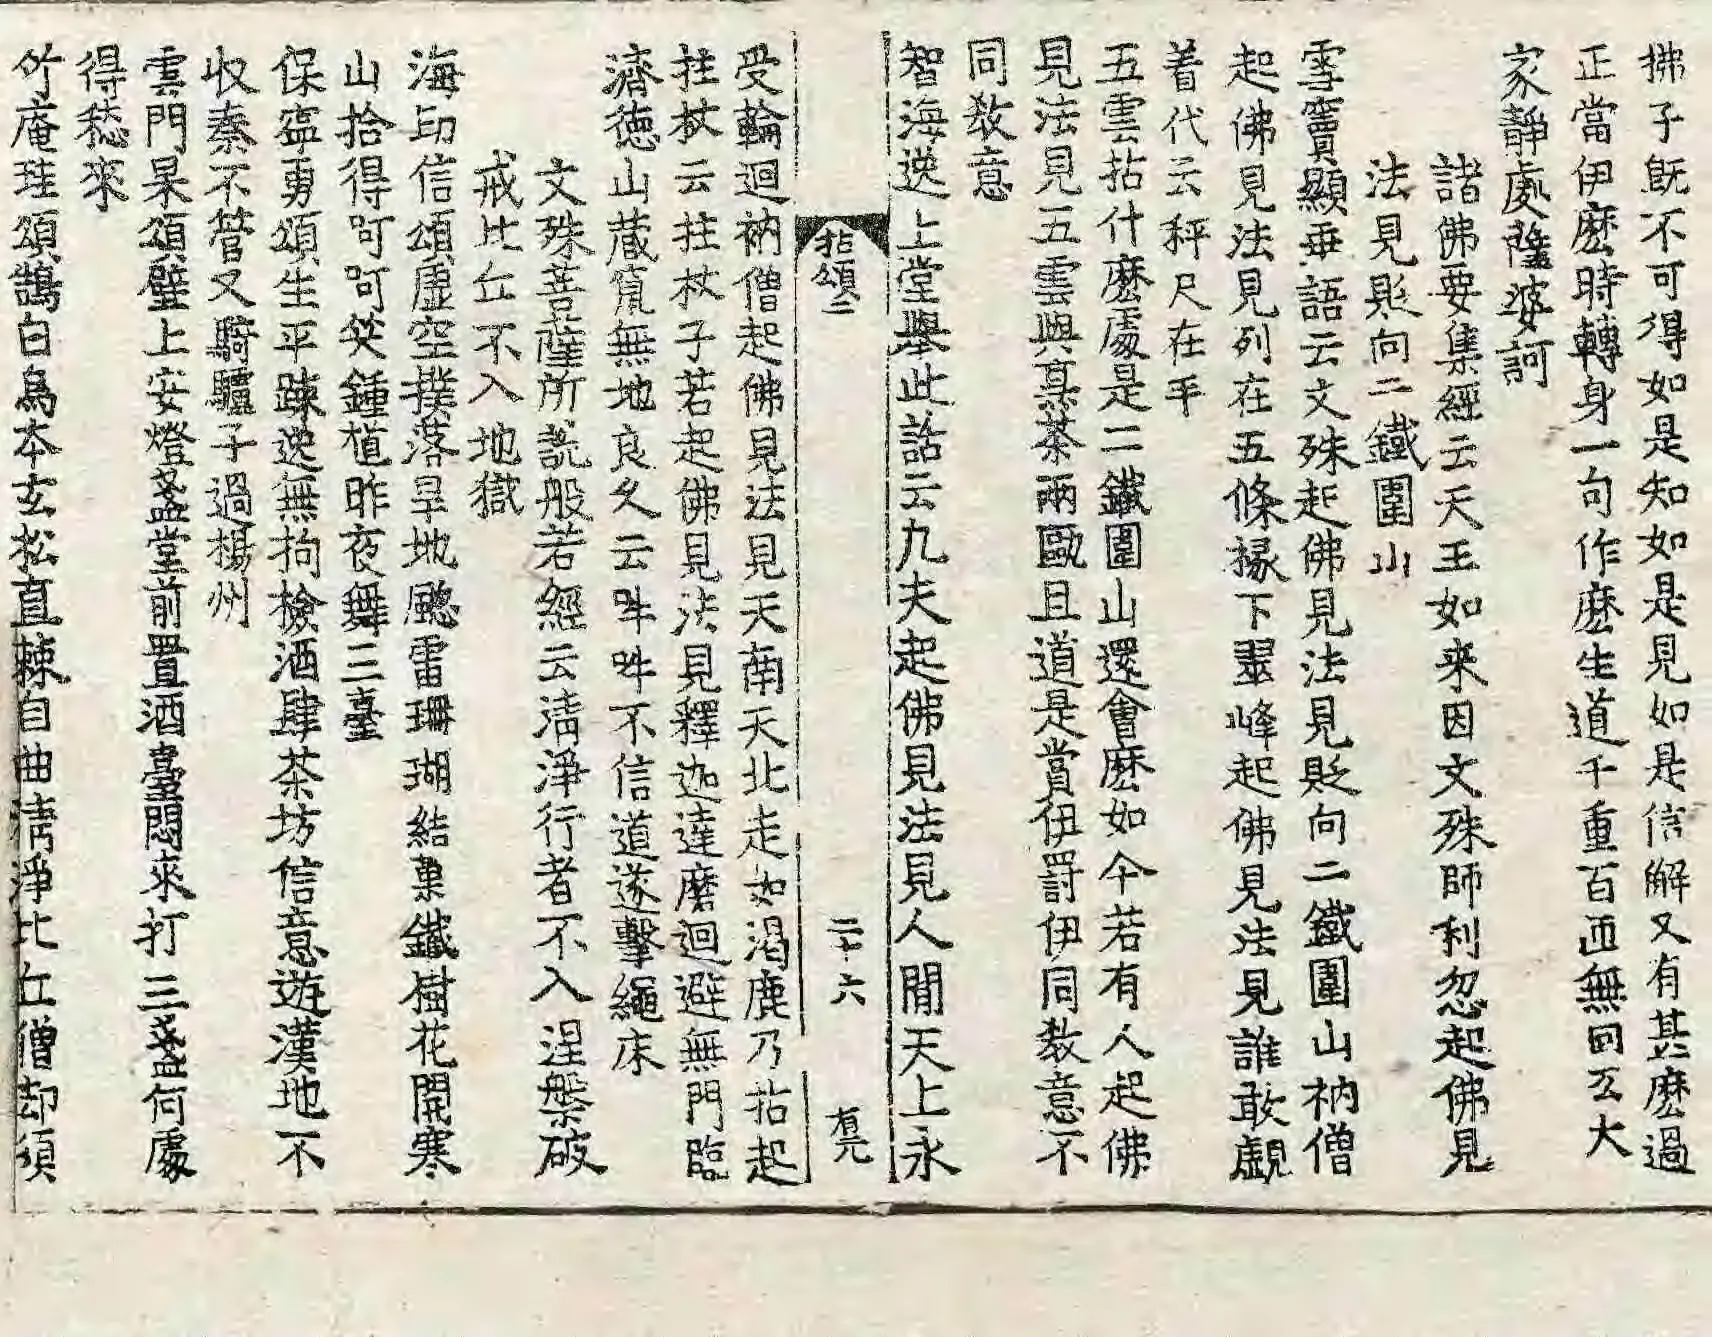 拂子旣不可得如是知如是見如是信解又有甚麽過
正當伊麽時轉身一句作麽生道千重百匝無回互大
家靜處薩婆訶
諸佛要集經云天王如来因文殊師利忽起佛見
法見貶向二鐵圍山
雪竇顯垂語云文殊起佛見法見貶向二鐵圍山衲僧
起佛見法見列在五條椽下翠峰起佛見法見誰敢覷
着代云秤尺在手
五雲拈什麽處是二鐵圍山還會麽如今若有人起佛
見法見五雲與烹茶兩甌且道是賞伊罸伊同敎意不
同敎意
智海逸上堂擧此話云九夫起佛見法見人間天上永
拈頌二 二十六 有元
受輪迴衲僧起佛見法見天南天北走如渴鹿乃拈起
拄杖云拄杖子若起佛見法見釋迦達磨迴避無門臨
濟德山蔵竄無地良久云吽吽不信道遂擊繩床
文殊菩薩所說般若經云淸淨行者不入涅槃破
戒比丘不入地獄
海印信頌虛空撲落旱地颷雷珊瑚結菓鐵樹花開寒
山拾得呵呵笑鍾馗昨夜舞三臺
保寧勇頌生平踈逸無拘撿酒肆茶坊信意遊漢地不
收秦不管又騎驢子過楊州
雲門杲頌壁上安燈盞堂前置酒臺悶來打三盞何處
得愁來
竹庵珪頌鵠白烏本玄松直棘自曲淸淨比丘僧却須